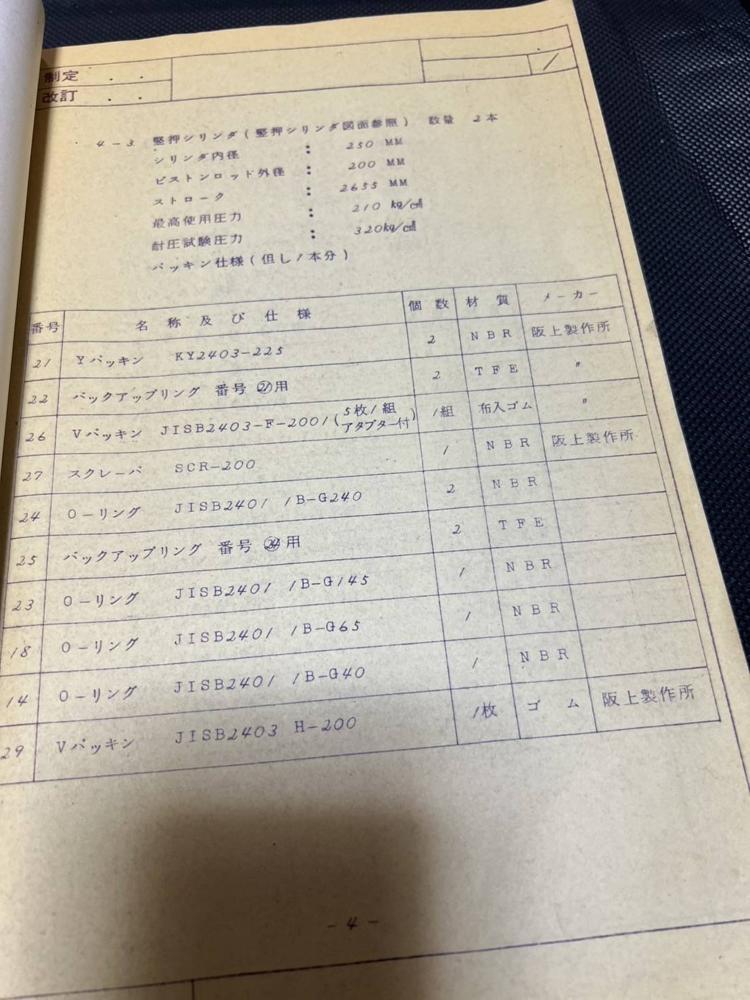 制定 . .
改訂 . .
/
4-3 竪押シリンダ(竪押シリンダ図面参照) 数量 2本
シリンダ内径 : 250 MM
ピストンロッド外径 : 200 MM
ストローク : 2655 MM
最高使用圧力 : 210 kg/c㎡
耐圧試験圧力 : 320kg/c㎡
パッキン仕様(但し1本分)
番号 名称及び仕様 個数 材質 メーカー
21 Yパッキン KY2403-225 2 NBR 阪上製作所
22 バックアップリング 番号㉑用 2 TFE 〃
26 Vパッキン JISB2403-F-200 1(5枚1組 アタプター付) 1組 布入ゴム 〃
27 スクレーパ SCR-200 1 NBR 阪上製作所
24 O-リング JISB2401 1B-G240 2 NBR
25 バックアップリング 番号㉔用 2 TFE
23 O-リング JISB2401 1B-G145 1 NBR
18 O-リング JISB2401 1B-G65 1 NBR
14 O-リング JISB2401 1B-G40 1 NBR
29 Vパッキン JISB2403 H-200 1枚 ゴム 阪上製作所
-4-